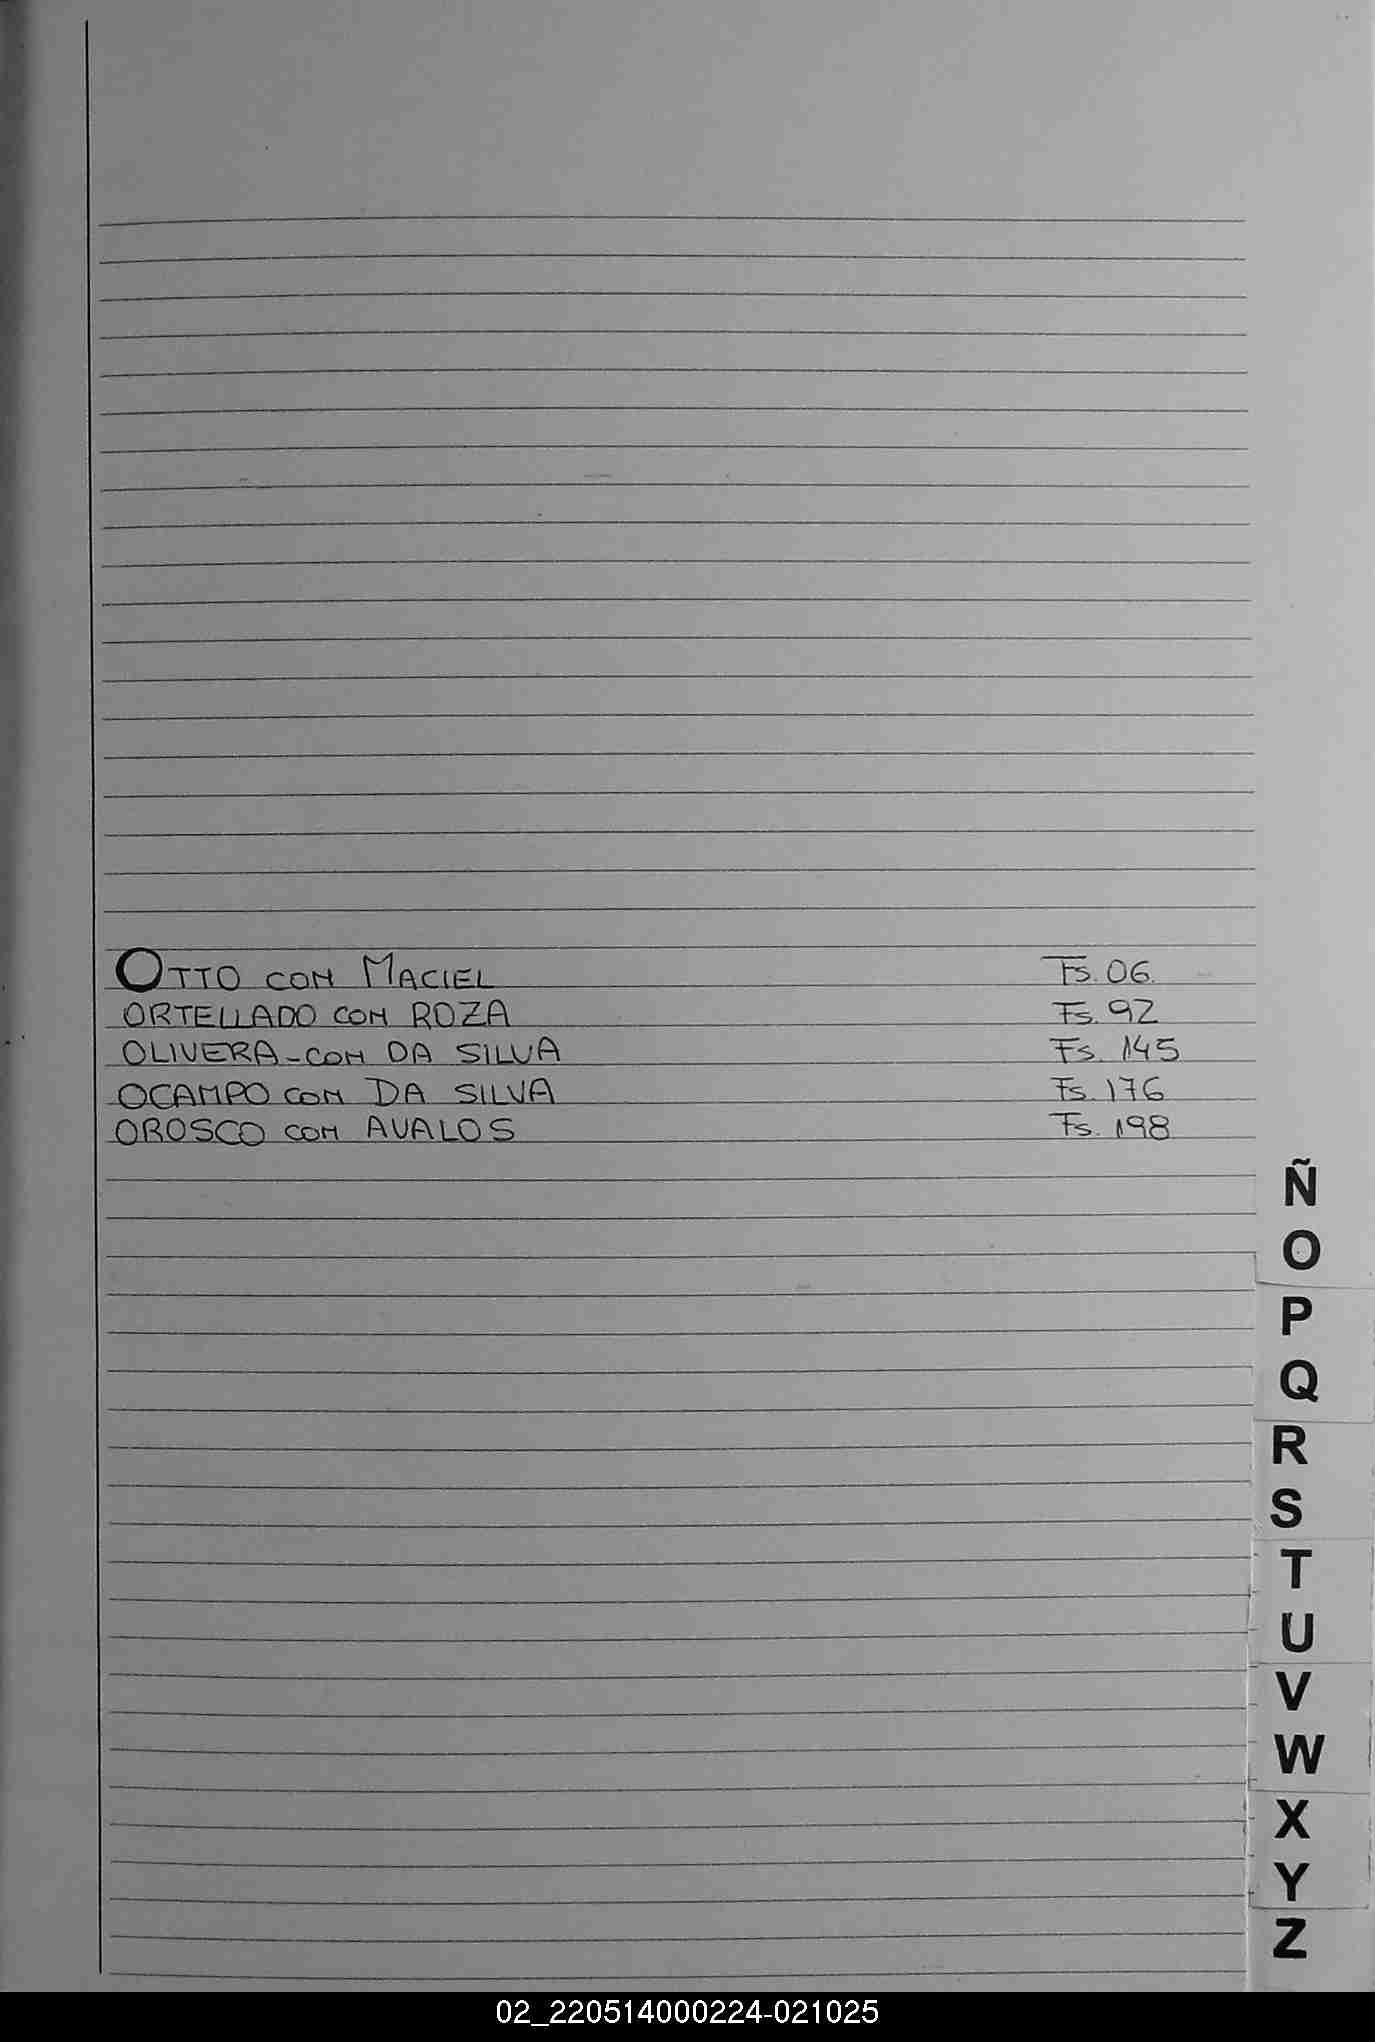 OTTO CON MACIEL Fs. 06.
ORTELLADO CON ROZA Fs. 92
OLIVERA-CON DA SILVA Fs. 145
OCAMPO CON DA SILVA Fs. 176
OROSCO CON AVALOS Fs. 198
Ñ
O
P
Q
R
S
T
U
V
W
X
Y
Z
02_220514000224-021025